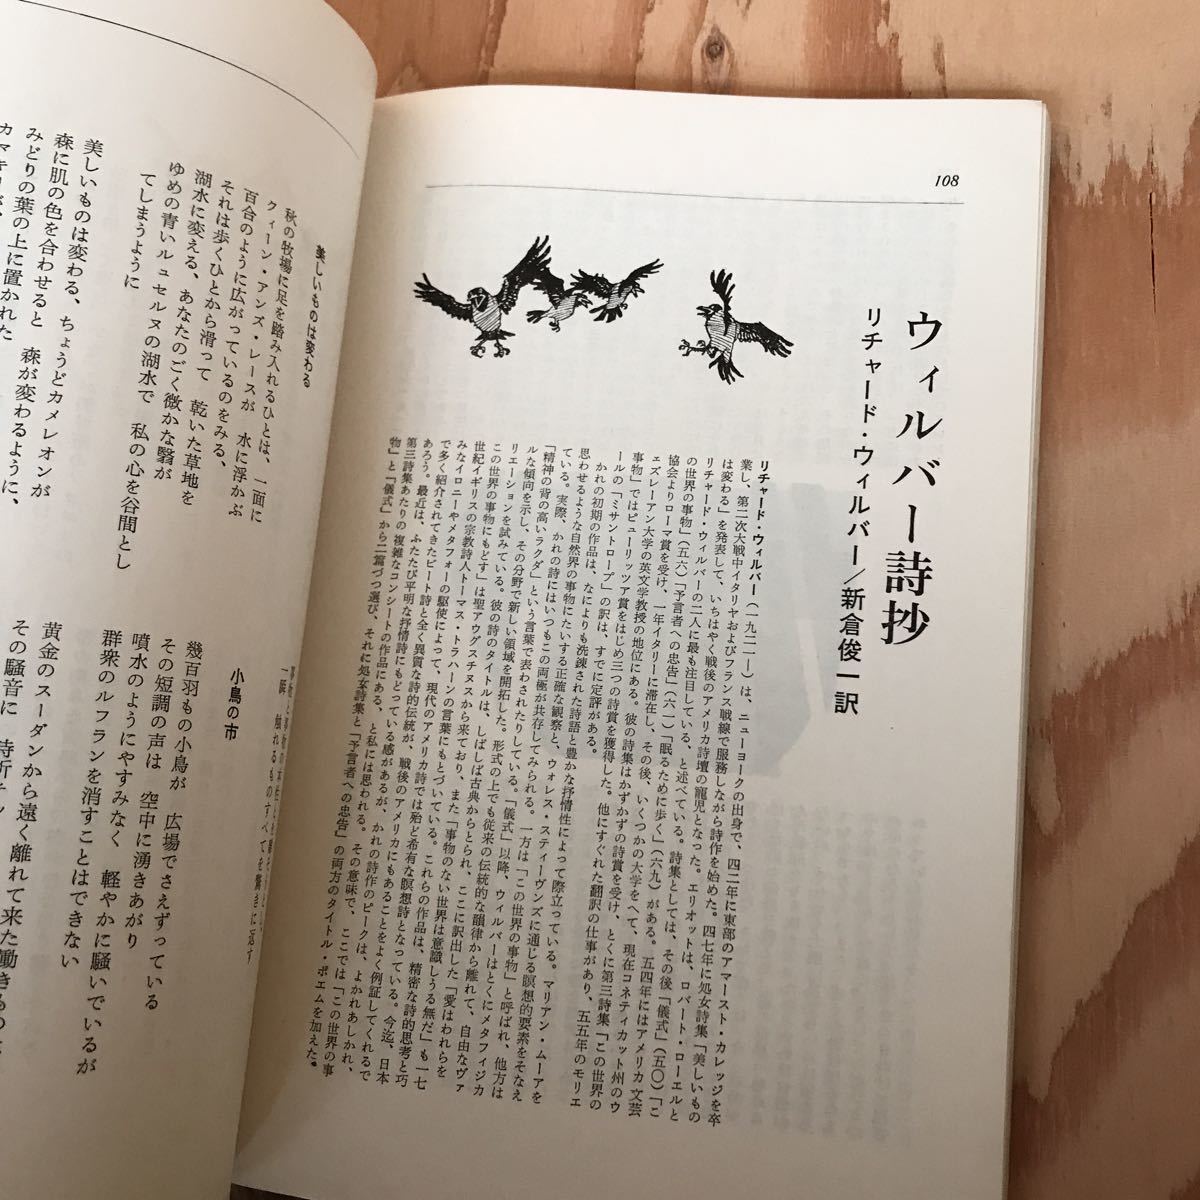 108
ウィルバー詩抄
リチャード・ウィルバー/新倉俊一訳
リチャード・ウィルバー(一九二一―)は、ニューヨークの出身で、四二年に東部のアマースト・カレッジを卒
業し、第二次大戦中イタリヤおよびフランス戦線で服務しながら詩作を始めた。四七年に処女詩集「美しいもの
は変わる」を発表して、いちはやく戦後のアメリカ詩壇の寵児となった。エリオットは、ロバート・ローエルと
リチャード・ウィルバーの二人に最も注目している、と述べている。詩集としては、その後「儀式」(五〇)「こ
の世界の事物」(五六)「予言者への忠告」(六一)「眠るために歩く」(六九)がある。五四年にはアメリカ文芸
協会よりローマ賞を受け、一年イタリーに滞在し、その後、いくつかの大学をへて、現在コネティカット州のウ
ェズレーアン大学の英文学教授の地位にある。彼の詩集はかずかずの詩賞を受け、とくに第三詩集「この世界の
事物」ではピューリッツア賞をはじめ三つの詩賞を獲得した。他にすぐれた翻訳の仕事があり、五五年のモリエ
ールの「ミサントロープ」の訳は、すでに定評がある。
かれの初期の作品は、なによりも洗錬された詩語と豊かな抒情性によって際立っている。マリアン・ムーアを
思わせるような自然界の事物にたいする正確な観察と、ウォレス・スティーヴンズに通じる瞑想的要素をそなえ
ている。実際、かれの詩にはいつもこの両極が共存してみられる。一方は「この世界の事物」と呼ばれ、他方は
「精神の背の高いラクダ」という言葉で表わされたりしている。「儀式」以降、ウィルバーはとくにメタフィジカ
ルな傾向を示し、その分野で新しい領域を開拓した。形式の上でも従来の伝統的な韻律から離れて、自由なヴァ
リエーションを試みている。彼の詩のタイトルは、しばしば古典からとられ、ここに訳出した「愛はわれらを
この世界の事物にもどす」は聖アウグスチヌスから来ており、また「事物のない世界は意識しうる無だ」も一七
世紀イギリスの宗教詩人トーマス・トラハーンの言葉にもとづいている。これらの作品は、精密な詩的思考と巧
みなイロニーやメタフォーの駆使によって、現代のアメリカ詩では殆ど希有な瞑想詩となっている。今迄、日本
で多く紹介されてきたビート詩と全く異質な詩的伝統が、戦後のアメリカにもあることをよく例証してくれるで
あろう。最近は、ふたたび平明な抒情詩にもどっている感があるが、かれの詩作のピークは、よかれあしかれ、
第三詩集あたりの複雑なコンシートの作品にある、と私には思われる。その意味で、ここでは「この世界の事
物」と「儀式」から二篇づつ選び、それに処女詩集と「予言者への忠告」の両方のタイトル・ポエムを加えた。
美しいものは変わる
秋の牧場に足を踏み入れるひとは、一面に
クィーン・アンズ・レースが 水に浮かぶ
百合のように広がっているのをみる、
それは歩くひとから滑って 乾いた草地を
湖水に変える、あなたのごく微かな翳が
ゆめの青いルュセルヌの湖水で 私の心を谷間とし
てしまうように
美しいものは変わる、ちょうどカメレオンが
森に肌の色を合わせると 森が変わるように、
みどりの葉の上に置かれた
小鳥の市
幾百羽もの小鳥が 広場でさえずっている
その短調の声は 空中に湧きあがり
噴水のようにやすみなく 軽やかに騒いでいるが
群衆のルフランを消すことはできない
黄金のスーダンから遠く離れて来た働きもの
その騒音に